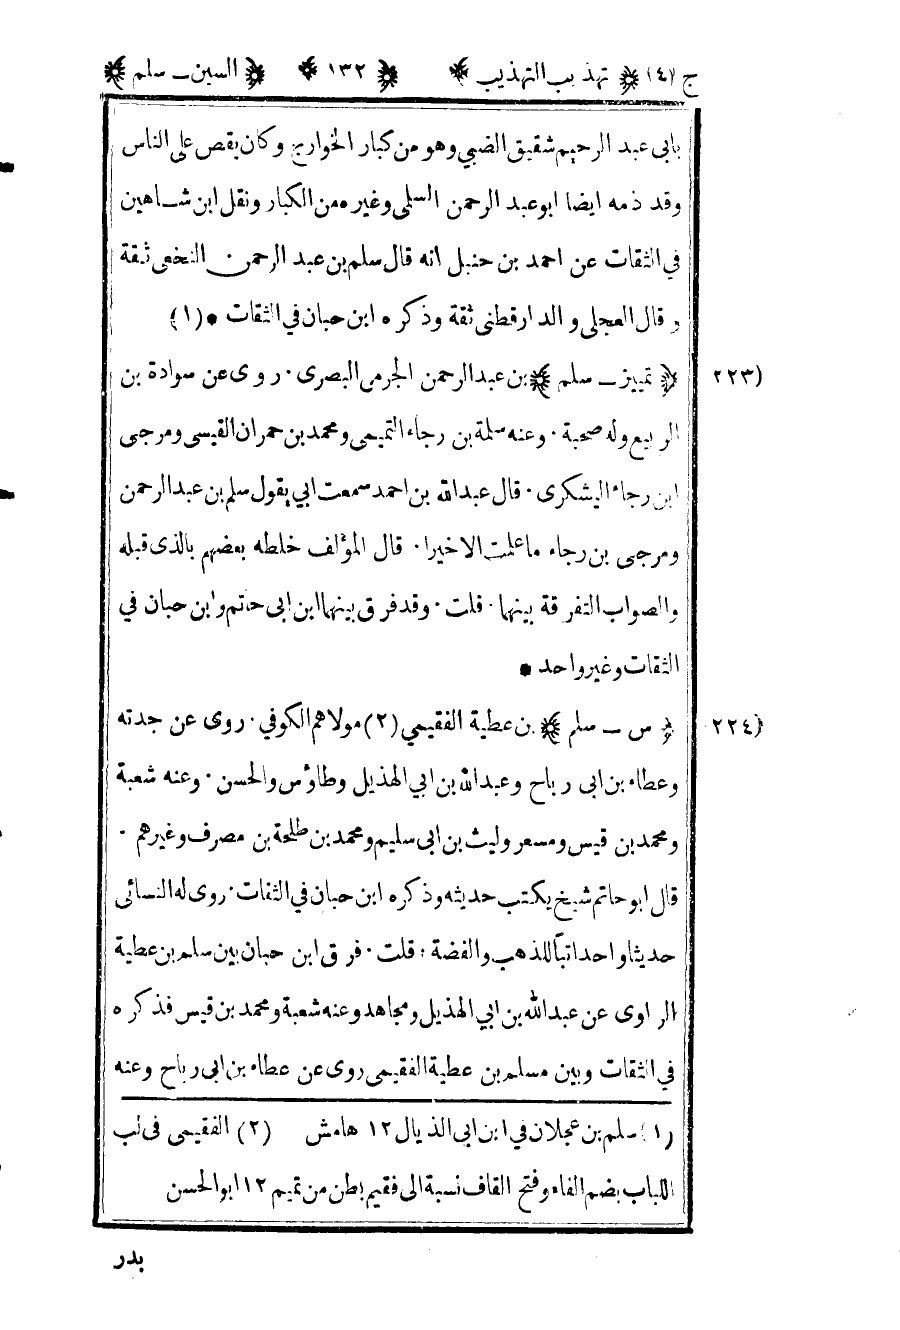 ج (٤) ﴿ تهذيب التهذيب ﴾ ﴿ ١٣٢ ﴾ ﴿ السين ــ سلم ﴾
بابى عبد الرحيم شقيق الضبي وهو من كبار الخوارج وكان يقص على الناس
وقد ذمه ايضا ابو عبد الرحمن السلمى وغيره من الكبار ونقل ابن شاهين
في الثقات عن احمد بن حنبل انه قال سلم بن عبد الرحمن النخعى ثقة
و قال العجلى و الدارقطنى ثقة وذكره ابن حبان في الثقات • (١)
(٢٢٣ ﴿ تمييز ــ سلم ﴾ بن عبد الرحمن الجرمى البصرى ٠ روى عن سوادة بن
الربيع وله صحبة ٠ وعنه سلمة بن رجاء التميمى ومحمد بن حمران القيسى ومرجى
ابن رجاء اليشكرى ٠ قال عبد الله بن احمد سمعت ابي يقول سلم بن عبد الرحمن
ومرجى بن رجاء ما علمت الا خيرا ٠ قال المؤلف خلطه بعضهم بالذى قبله
والصواب التفرقة بينهما ٠ قلت ٠ وقد فرق بينهما ابن ابى حاتم وابن حبان في
الثقات وغير واحد •
(٢٢٤ ﴿ س ــ سلم ﴾ بن عطية الفقيمي (٢) مولاهم الكوفي ٠ روى عن جدته
وعطاء بن ابى رباح وعبد الله بن ابي الهذيل وطاؤس والحسن ٠ وعنه شعبة
ومحمد بن قيس ومسعر وليث بن ابى سليم ومحمد بن طلحة بن مصرف وغيرهم ٠
قال ابو حاتم شيخ يكتب حديثه وذكره ابن حبان في الثقات ٠ روى له النسائى
حديثا واحدا تبا للذهب والفضة ؛ قلت ٠ فرق ابن حبان بين سلم بن عطية
الراوى عن عبد الله بن ابي الهذيل ومجاهد وعنه شعبة ومحمد بن قيس فذكره
في الثقات وبين مسلم بن عطية الفقيمى روى عن عطاء بن ابى رباح وعنه
(١) سلم بن عجلان في ابن ابى الذيال ١٢ هامش (٢) الفقيمى فى لب
اللباب بضم الفاء وفتح القاف نسبة الى فقيم بطن من تميم ١٢ ابو الحسن
بدر